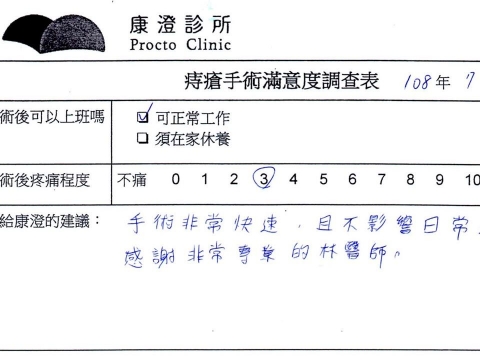 康澄診所
Procto Clinic
痔瘡手術滿意度調查表 108年 7
術後可以上班嗎 可正常工作
須在家休養
術後疼痛程度 不痛 0 1 2 3 4 5 6 7 8 9 10
給康澄的建議: 手術非常快速,且不影響日常
感謝非常專業的林醫師。